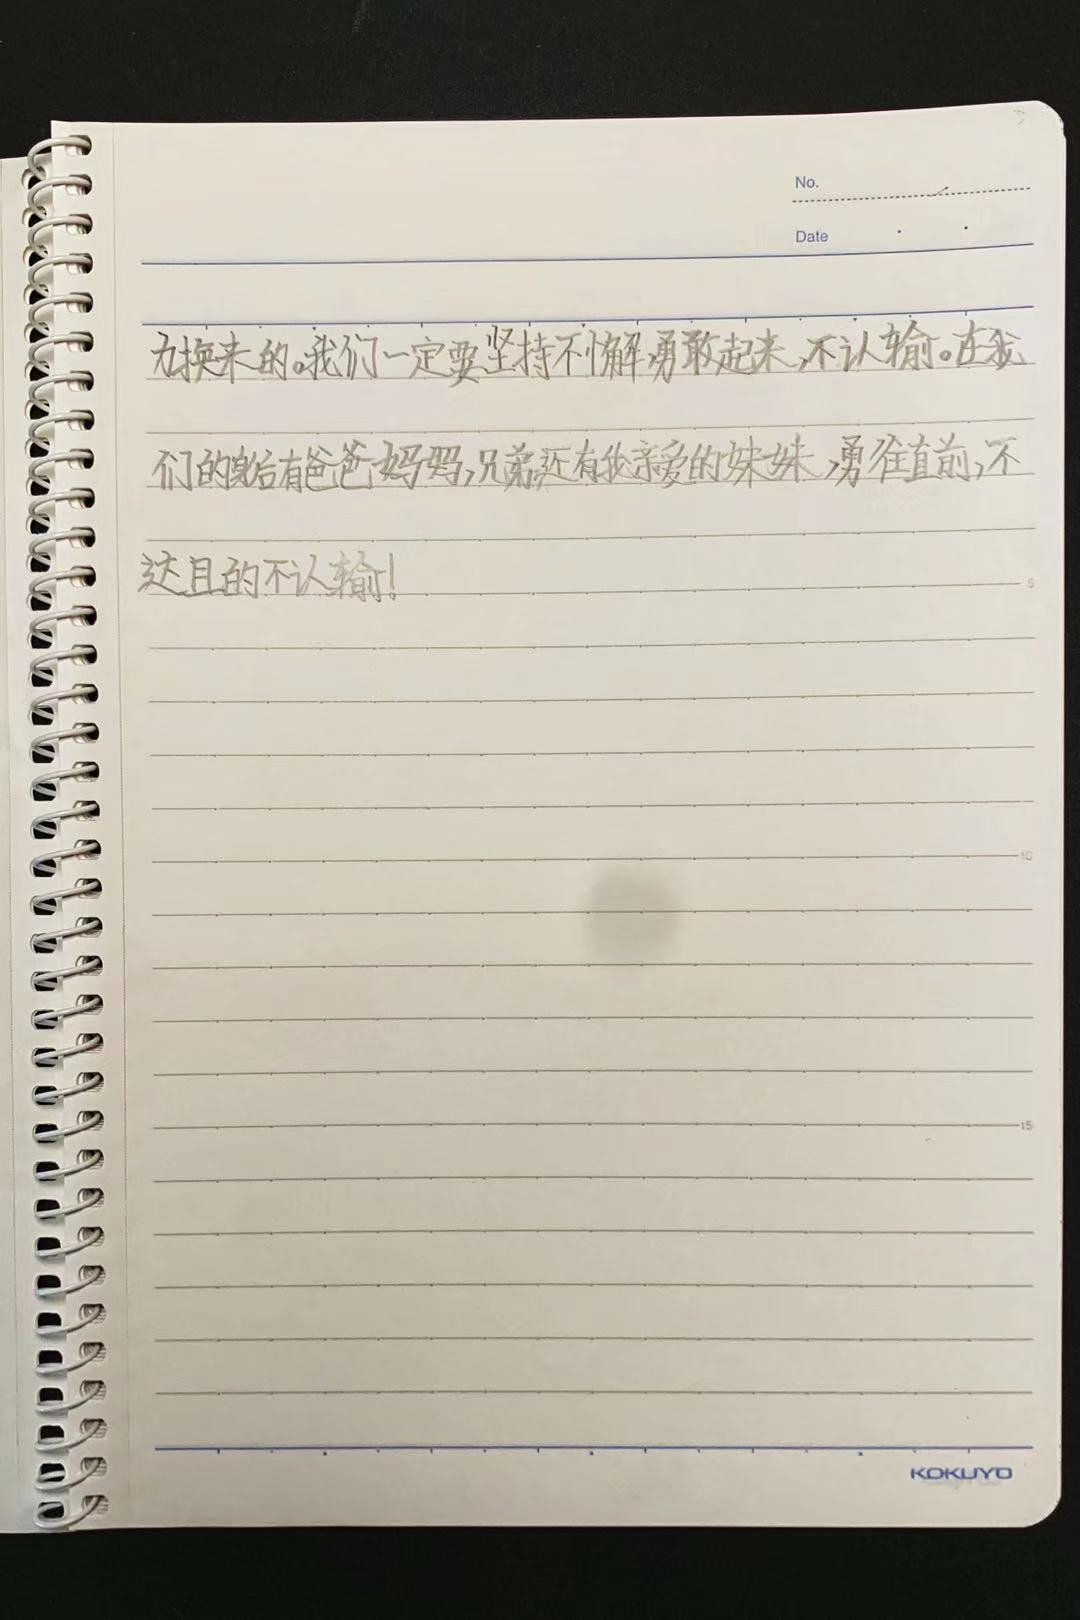 No.
Date
力换来的。我们一定要坚持不懈,勇敢起来,不认输。在我
们的身后有爸爸妈妈,兄弟,还有我亲爱的妹妹,勇往直前,不
达目的不认输!
5
10
15
KOKUYO